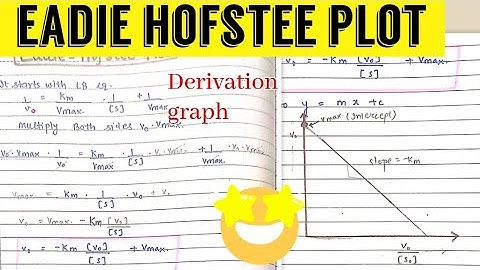 EADIE HOFSTEE PLOT
It starts with LB eq.
1/v₀ = Km/Vmax · 1/[S] + 1/Vmax
multiply Both sides v₀·Vmax.
v₀·Vmax · 1/v₀ = Km/Vmax · 1/[S] · v₀·Vmax + 1/Vmax · v₀·Vmax
Vmax = Km · 1/[S] · v₀ + v₀
v₀ = Vmax - Km [v₀]/[S]
v₀ = -Km [v₀]/[S] + Vmax.
Derivation
graph
= -Km [v₀]/[S] + Vmax.
y = mx + c
Vmax (Intercept)
v₀
slope = -Km
v₀/[S₀]